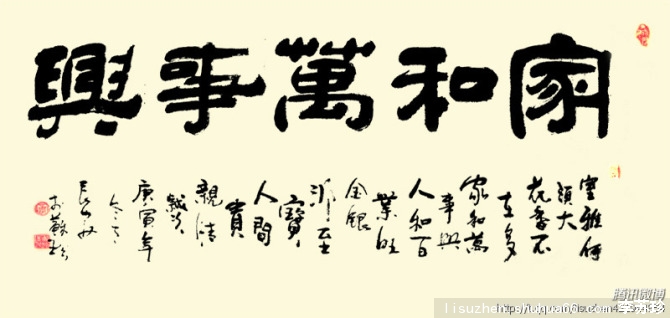 家和萬事興
室雅何
須大
花香不
在多
家和萬
事興
人和百
業旺
金銀
非至
寶
人間
貴
親情
庚寅年
腾讯微博